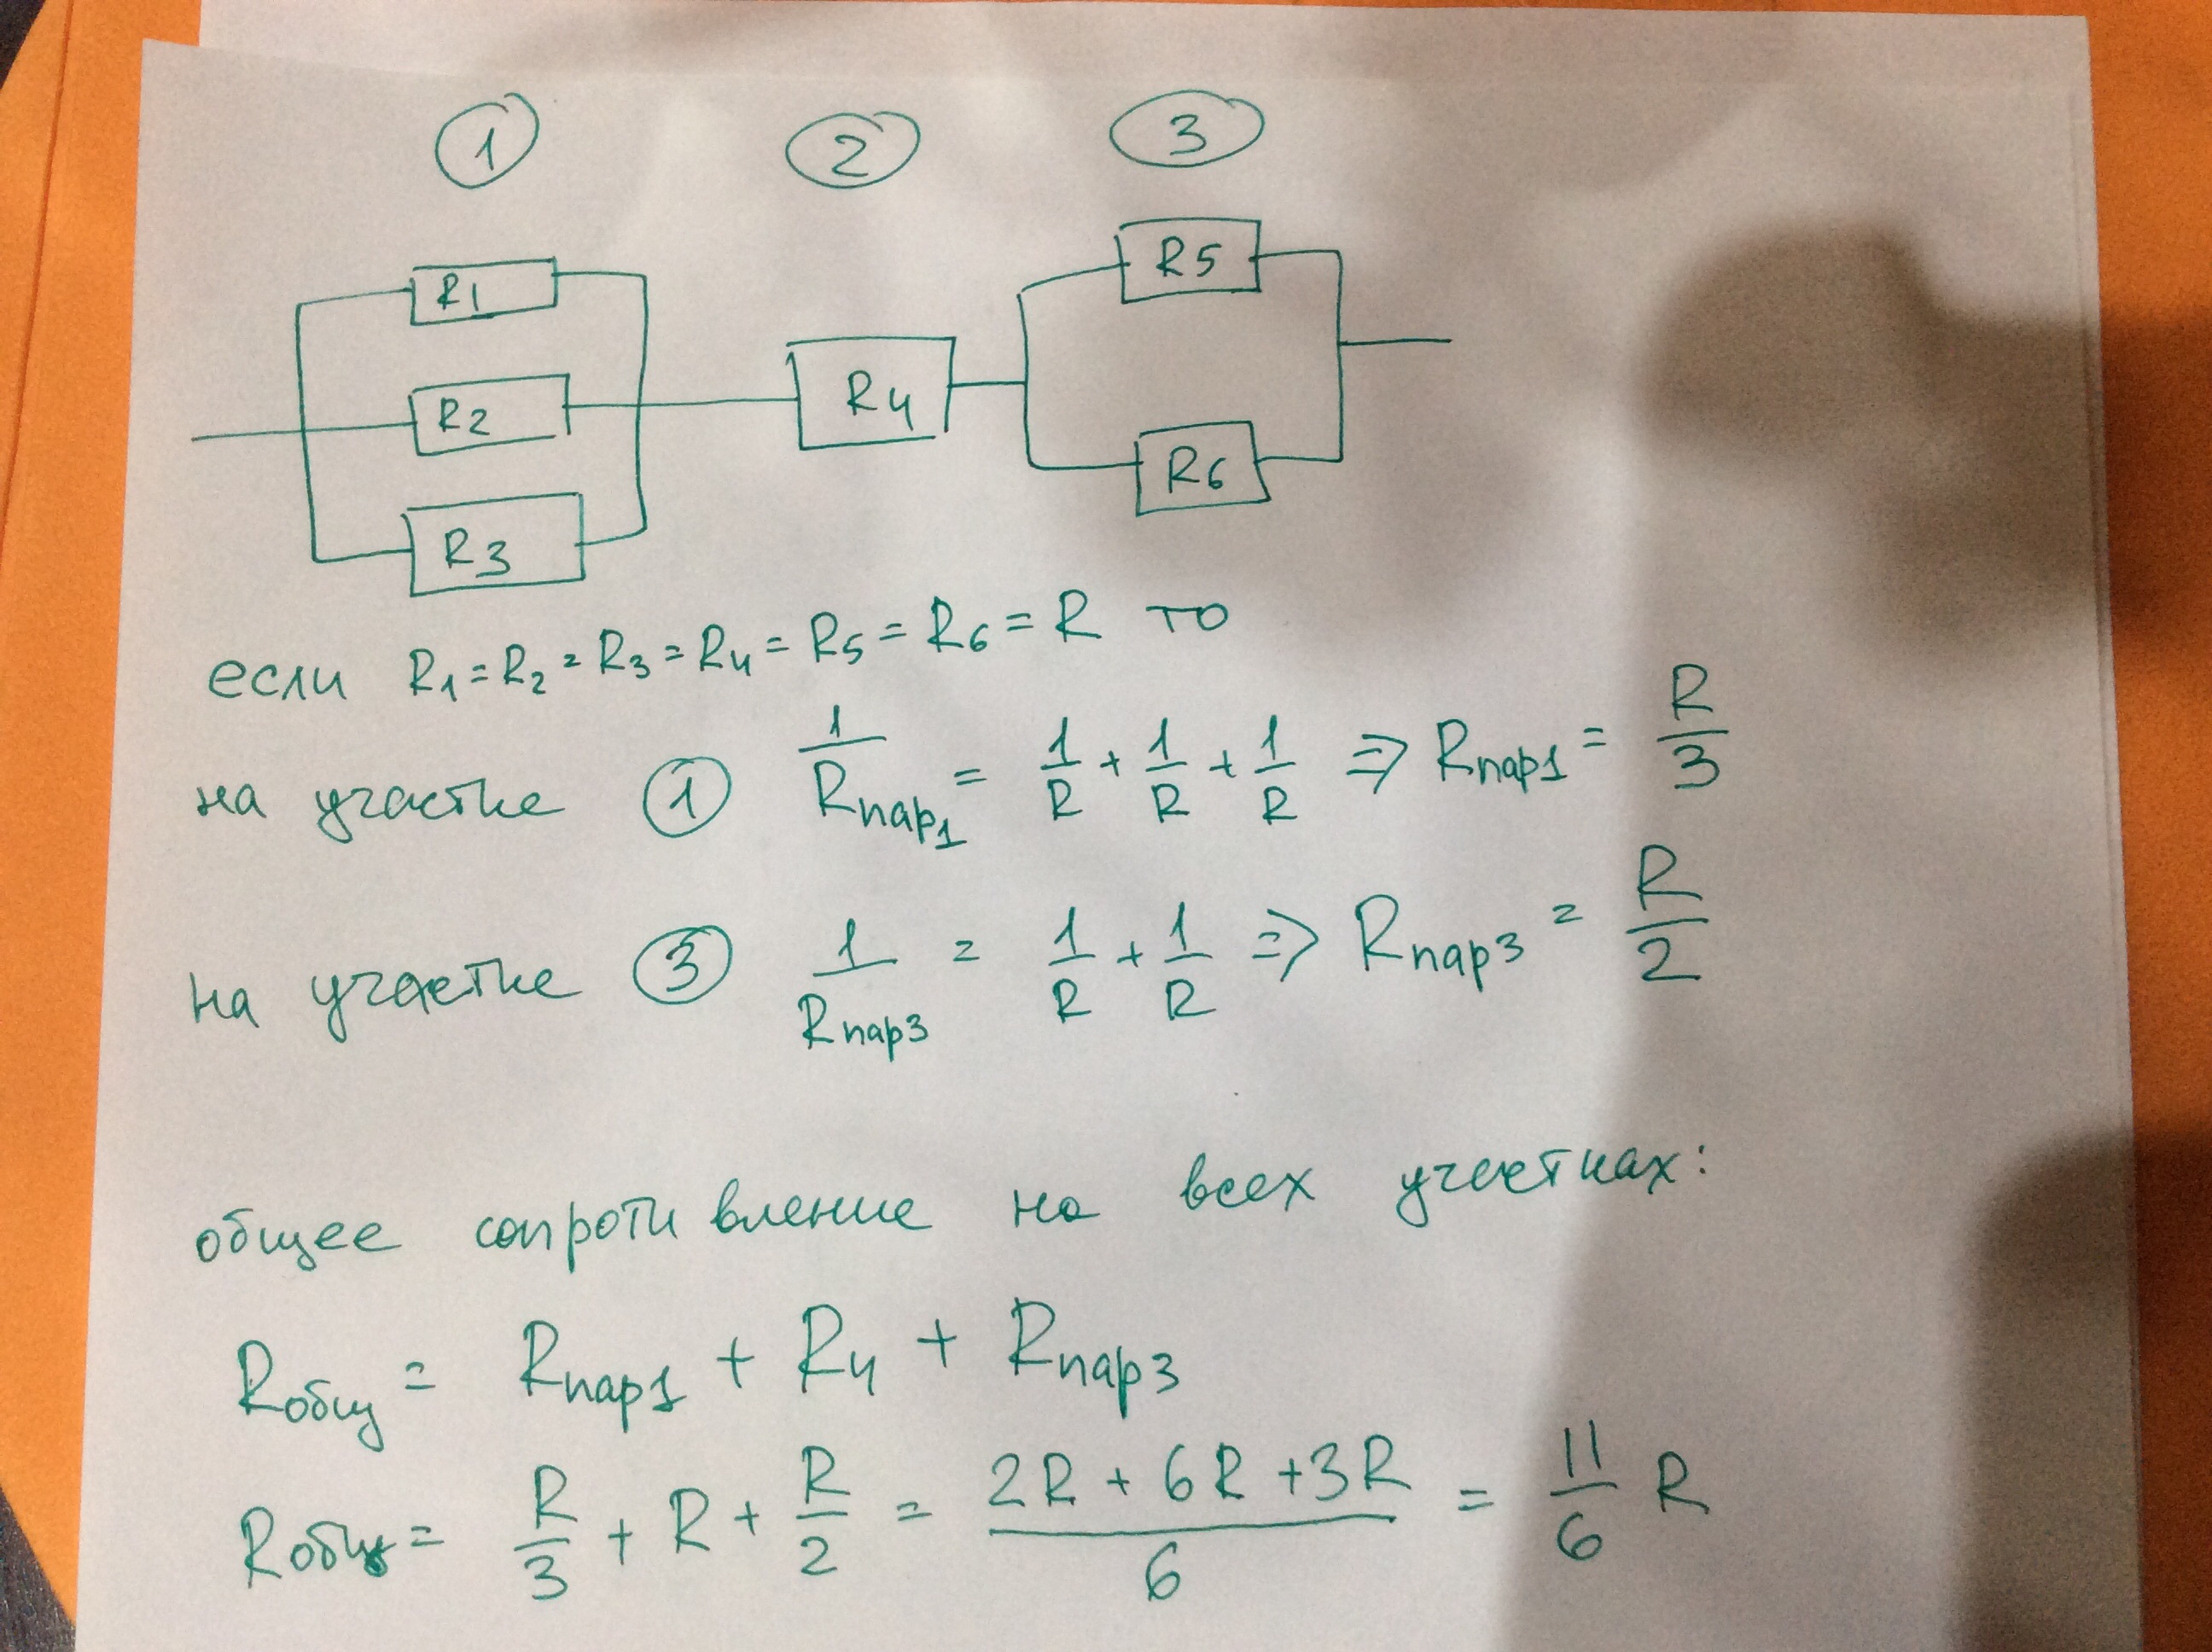 1 2 3
R1
R2
R3
R4
R5
R6
если R₁ = R₂ = R₃ = R₄ = R₅ = R₆ = R то
на участке 1 1/Rпар1 = 1/R + 1/R + 1/R ⇒ Rпар1 = R/3
на участке 3 1/Rпар3 = 1/R + 1/R ⇒ Rпар3 = R/2
общее сопротивление на всех участках:
Rобщ = Rпар1 + R4 + Rпар3
Rобщ = R/3 + R + R/2 = (2R + 6R + 3R)/6 = 11/6 R